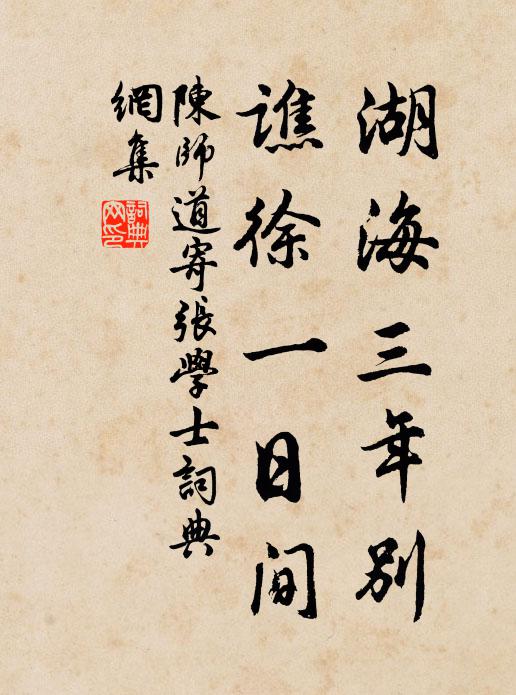 湖海三年別
譙徐一日間
陳師道寄張學士詞典
網集
詞典
网印